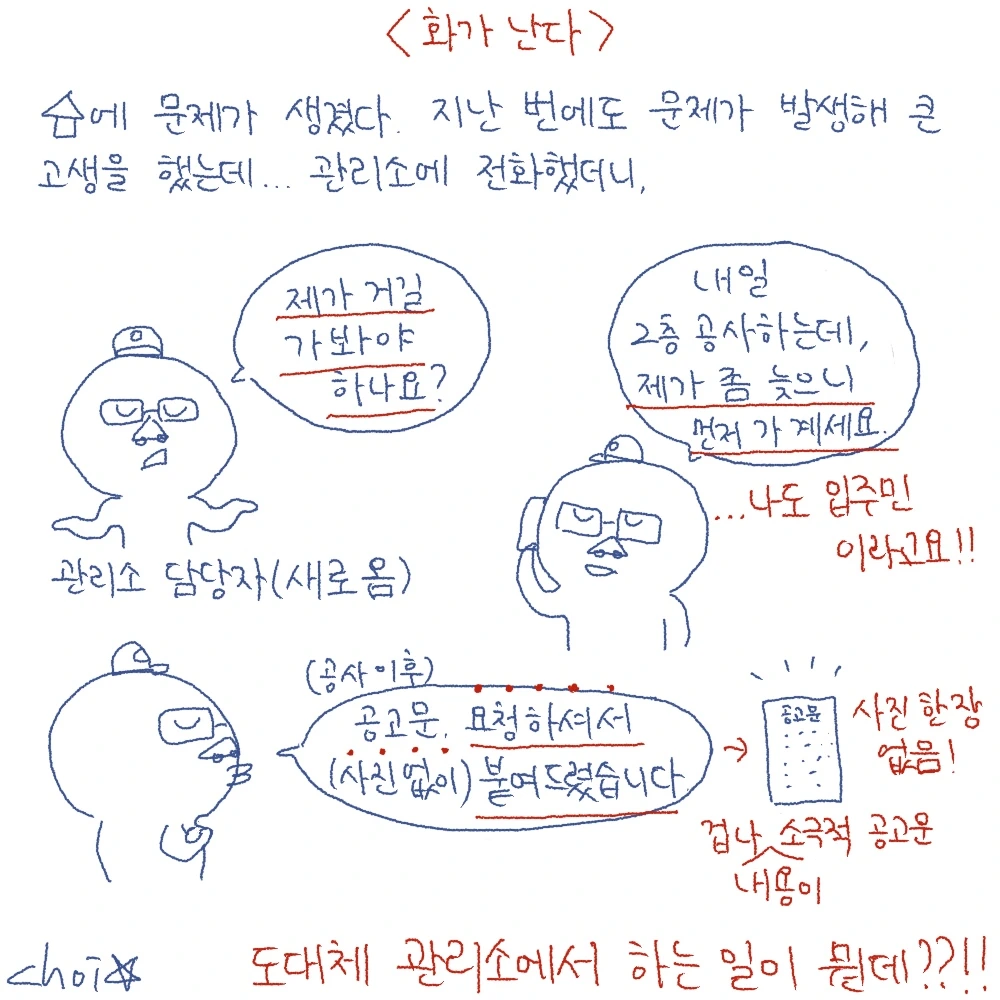 <화가 난다>
숍에 문제가 생겼다. 지난 번에도 문제가 발생해 큰
고생을 했는데... 관리소에 전화했더니,
제가 거길
가봐야
하나요?
관리소 담당자(새로 옴)
내일
2층 공사하는데,
제가 좀 늦으니
먼저 가 계세요.
...나도 입주민
이라고요!!
(공사 이후)
공고문. 요청하셔서
(사진 없이) 붙여드렸습니다.
→
공고문
사진 한 장
없음!
겁나 소극적 공고문
내용이
choi☆
도대체 관리소에서 하는 일이 뭔데??!!